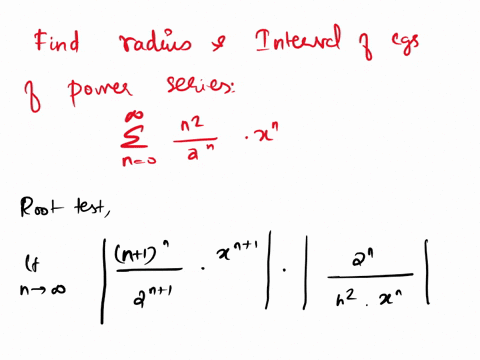 Find radius & Interval of cgs
of power series:
∞
∑ n² / 2ⁿ . xⁿ
n=0
Root test,
lt n→∞ | (n+1)ⁿ / 2ⁿ⁺¹ . xⁿ⁺¹ | . | 2ⁿ / n² . xⁿ |